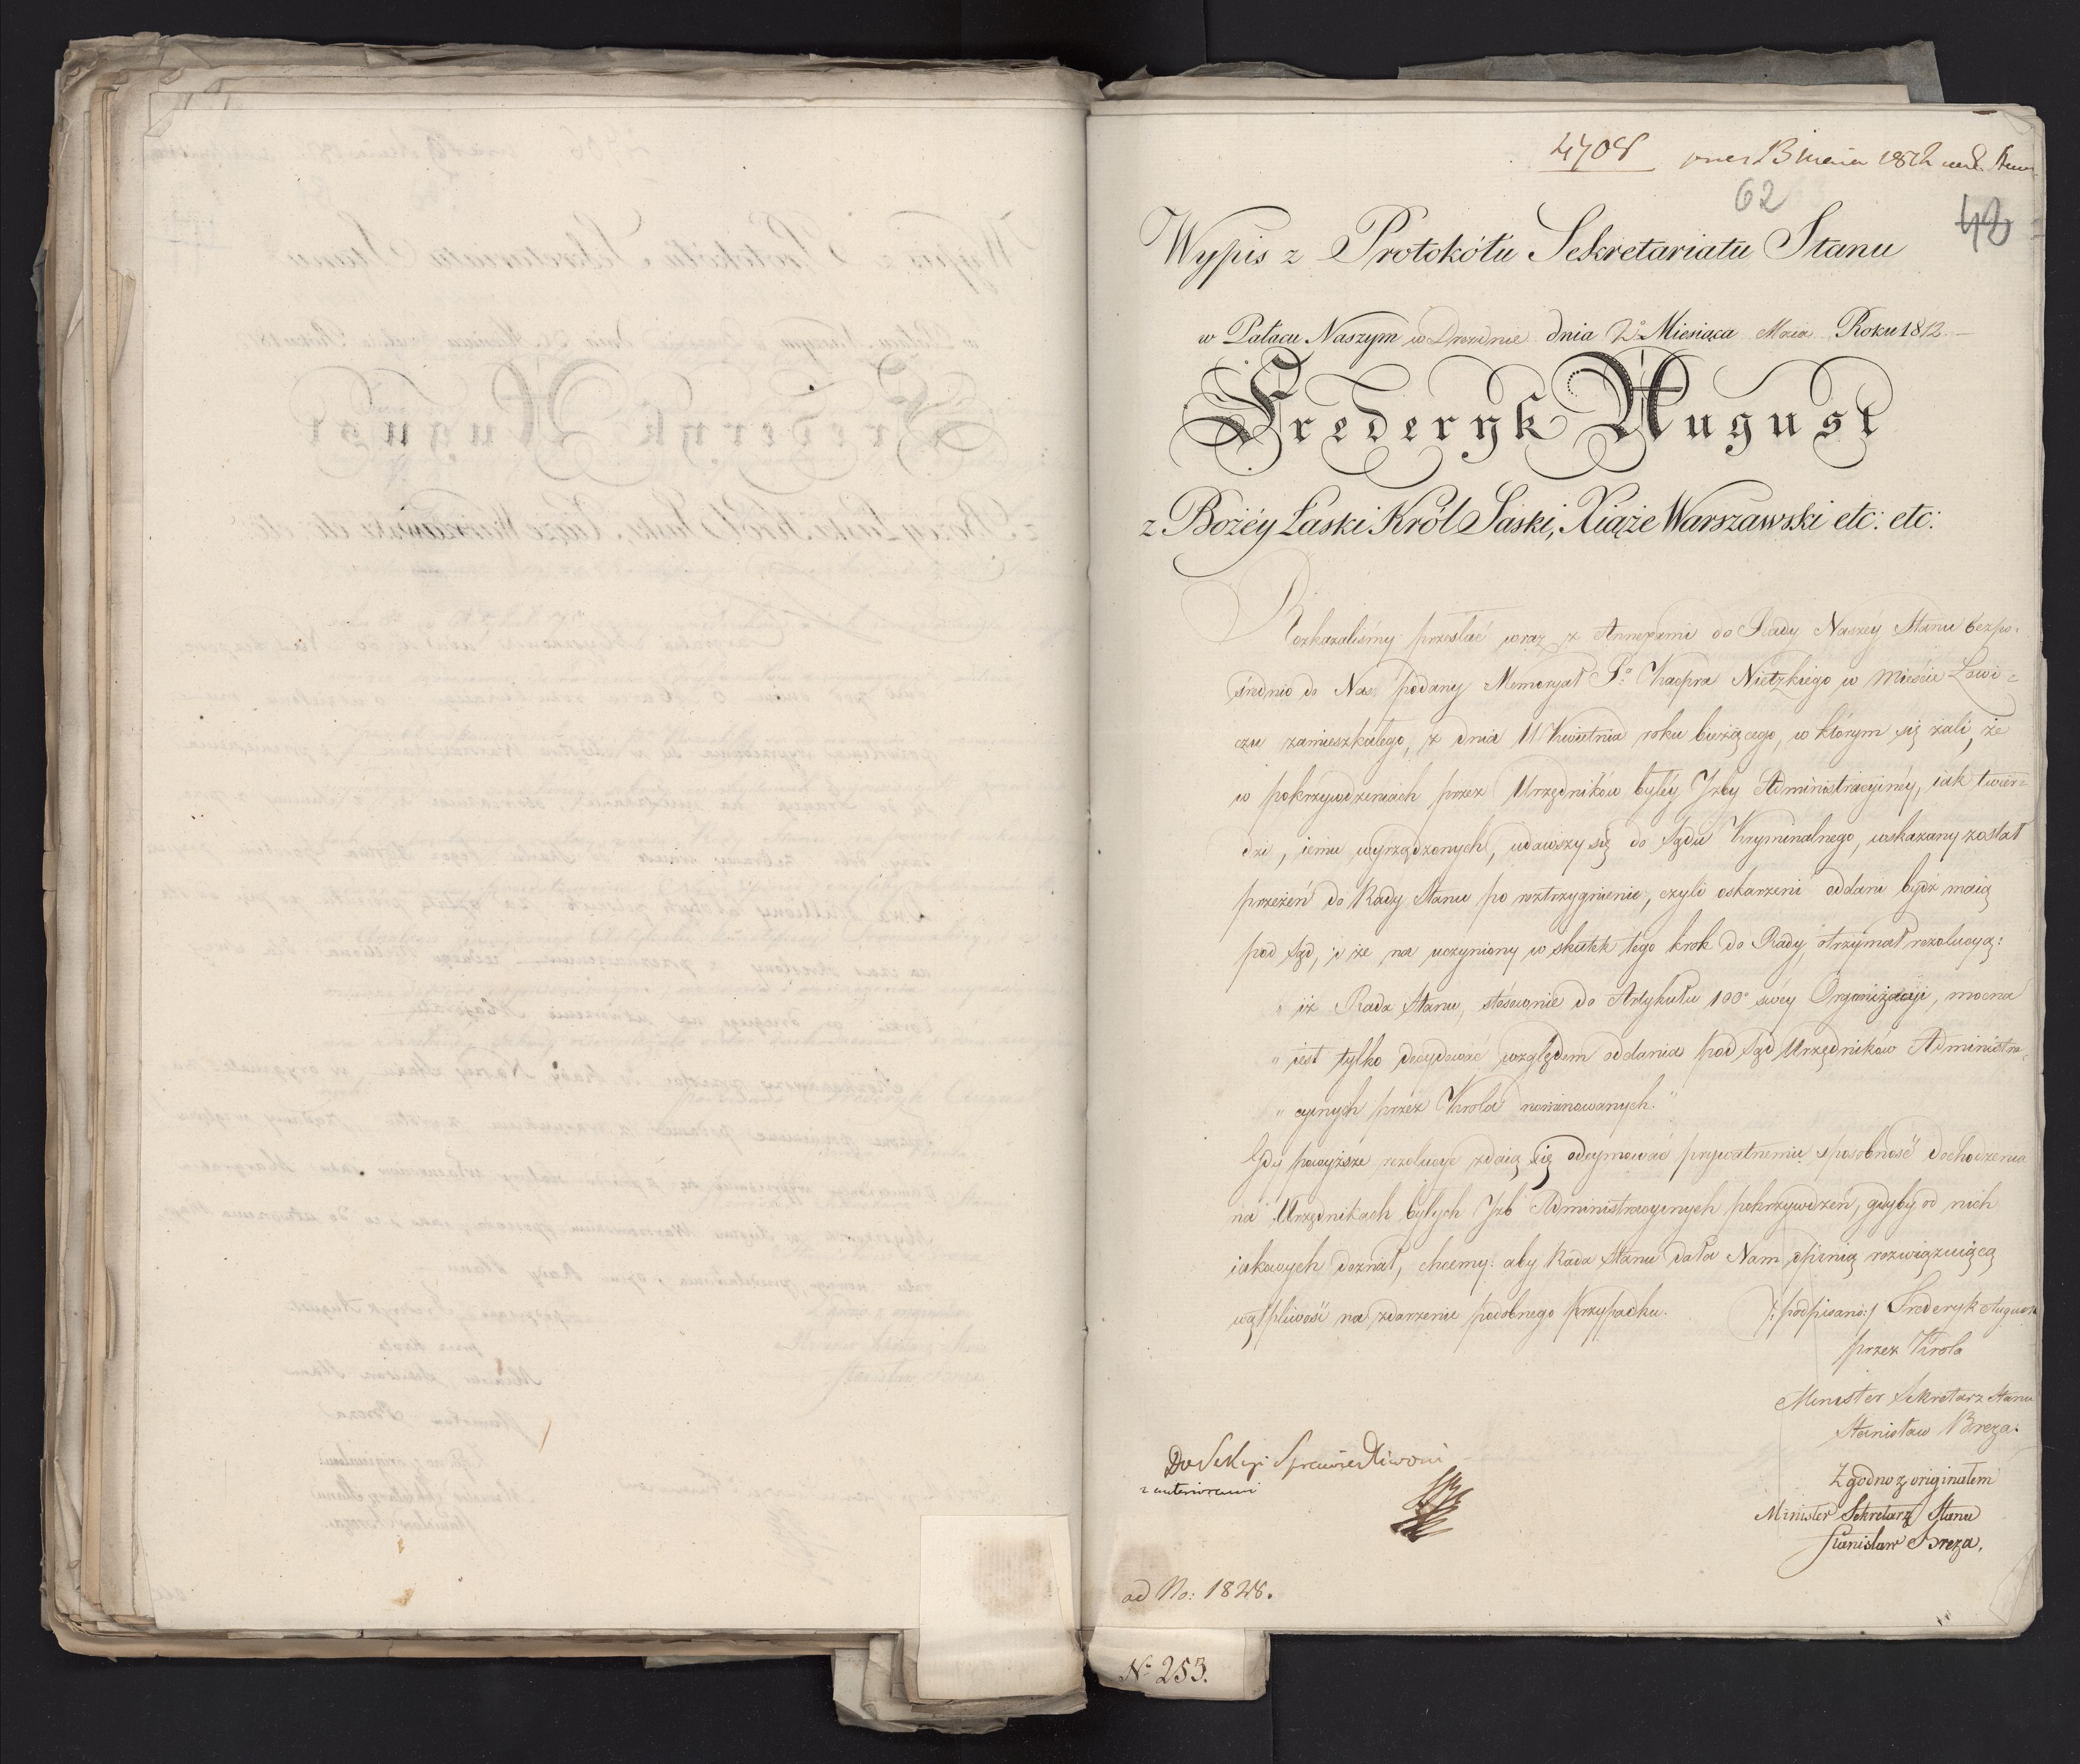 4708
13 Maia 1812
62
48
Wypis z Protokółu Sekretariatu Stanu
w Pałacu Naszym w Dreznie dnia 2º Miesiąca Maia Roku 1812
Frederyk August
z Bożéy Łaski Król Saski, Xiąże Warszawski etc: etc:
Rozkazaliśmy przesłać wraz z Annexami do Rady Naszéy Stanu bezpo-
średnio do Nas podany Memoryał Po Kacpra Nietzkiego w Mieście Łowi-
czu zamieszkałego, z dnia 11 Kwietnia roku bieżącego, w którym się żali, że
w pokrzywdzeniach przez Urzędników byłéy Izby Administracyjnéy, iak twier-
dzi, iemu wyrządzonych, udawszy się do Sądu Kryminalnego, wskazany został
przezeń do Rady Stanu po roztrzygnienie, czyli oskarżeni oddani bydź maią
pod Sąd, i że na uczyniony w skutek tego krok do Rady, otrzymał rezolucyą:
" iż Rada Stanu, stósownie do Artykułu 100º swéy Organizacyi, mocna
" iest tylko decydować względem oddania pod Sąd Urzędników Administra-
" cyinych przéz Krola nominowanych."
Gdy powyższe rezolucye zdaią się odeymować prywatnemu sposobność dochodzenia
na Urzędnikach byłych Izb Administracyinych pokrzywdzeń, gdyby od nich
iakowych doznał, chcemy: aby Rada Stanu dała Nam opinią rozwiązuiącą
wątpliwość na zdarzenie podobnego przypadku. /: podpisano :/ Frederyk August
przez Krola
Minister Sekretarz Stanu
Stanisław Breza.
Do Sekcyi Sprawiedliwości
z anteriorami
Zgodno z originałem
Minister Sekretarz Stanu
Stanisław Breza.
ad No: 1828.
Nº 253.